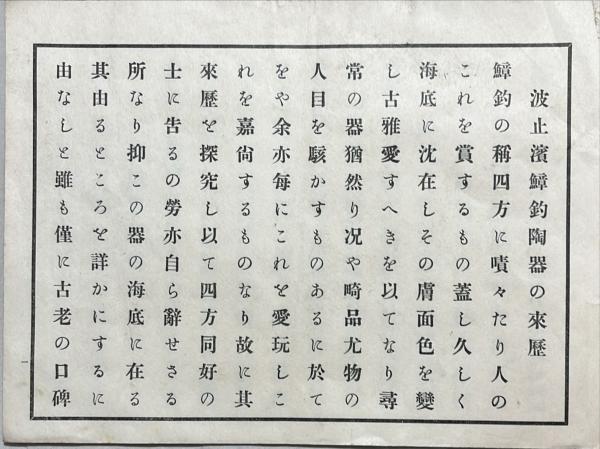 波止濱鱆釣陶器の來歷
鱆釣の稱四方に嘖々たり人の
これを賞するもの蓋し久しく
海底に沈在しその膚面色を變
し古雅愛すへきを以てなり尋
常の器猶然り况や畸品尤物の
人目を駭かすものあるに於て
をや余亦每にこれを愛玩しこ
れを嘉尙するものなり故に其
來歷を探究し以て四方同好の
士に吿るの勞亦自ら辭せさる
所なり抑この器の海底に在る
其由るところを詳かにするに
由なしと雖も僅に古老の口碑